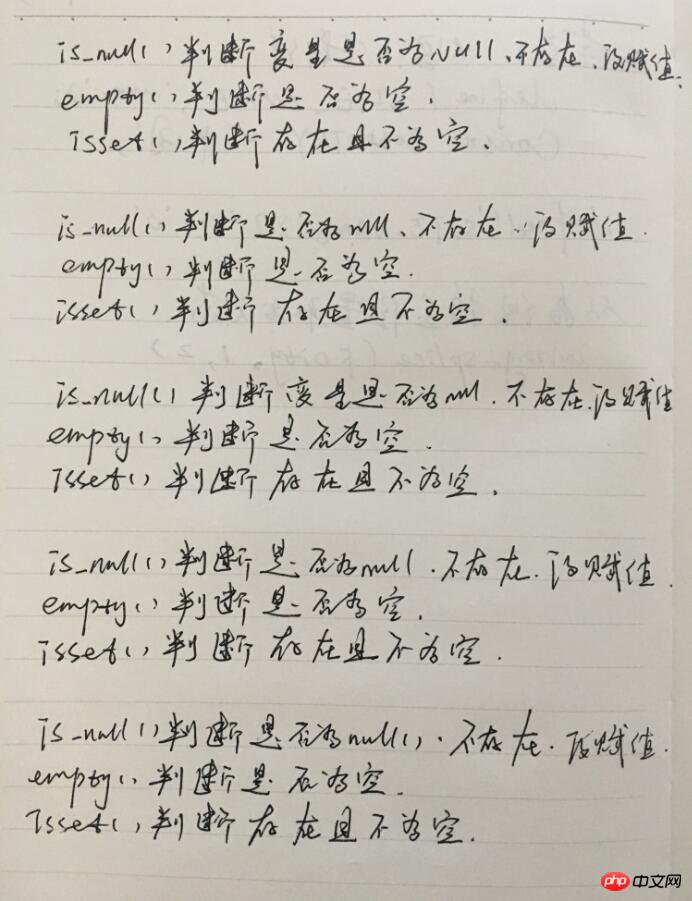 is_null()判断变量是否为Null、不存在、没赋值.
empty()判断是否为空.
isset()判断存在且不为空.
is_null()判断是否为null、不存在、没赋值.
empty()判断是否为空.
isset()判断存在且不为空.
is_null()判断变量是否为null、不存在、没赋值
empty()判断是否为空.
isset()判断存在且不为空.
is_null()判断是否为null、不存在、没赋值
empty()判断是否为空.
isset()判断存在且不为空.
is_null()判断是否为null()、不存在、没赋值.
empty()判断是否为空.
isset()判断存在且不为空.
php 中文网